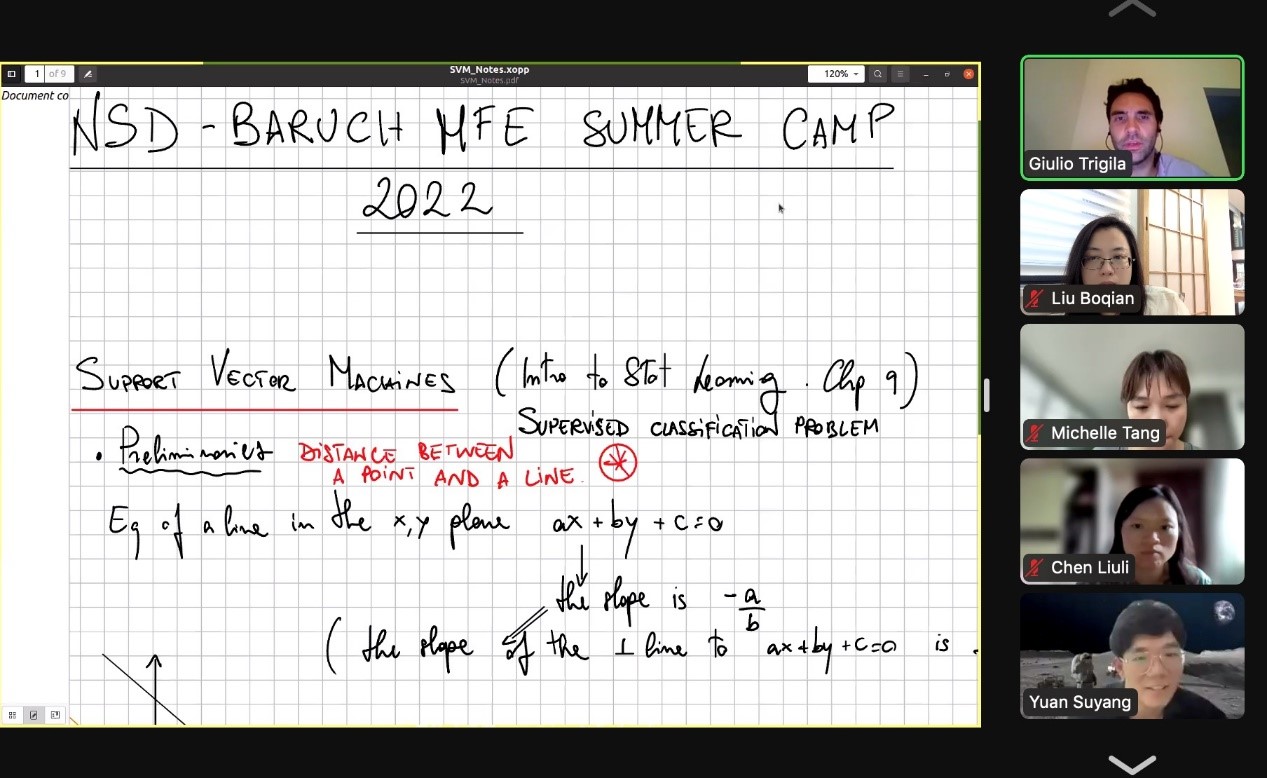 1 of 9
SVM_Notes.xopp
SVM_Notes.pdf
120%
Document co
NSD - BARUCH MFE SUMMER CAMP
2022
SUPPORT VECTOR MACHINES (Intro to Stat Learning. Chp 9)
SUPERVISED CLASSIFICATION PROBLEM
• Preliminaries DISTANCE BETWEEN
A POINT AND A LINE.
Eq of a line in the x,y plane ax + by + c = 0
the slope is -a/b
( the slope of the ⊥ line to ax+by+c=0 is
Giulio Trigila
Liu Boqian
Michelle Tang
Chen Liuli
Yuan Suyang